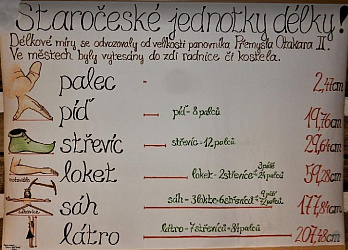 Staročeské jednotky délky!
Délkové míry se odvozovaly od velikosti panovníka Přemysla Otakara II.
Ve městech byly vytesány do zdí radnice či kostela.
palec 2,47cm
píď píď=8palců 19,76cm
střevíc střevíc=12palců 29,64cm
loket loket=2střevíce= 3pídě =24palců 59,28cm
sáh sáh=3lokte=6střevíců= 9pídí 177,84cm
látro látro=7střevíců=84palců 207,48cm